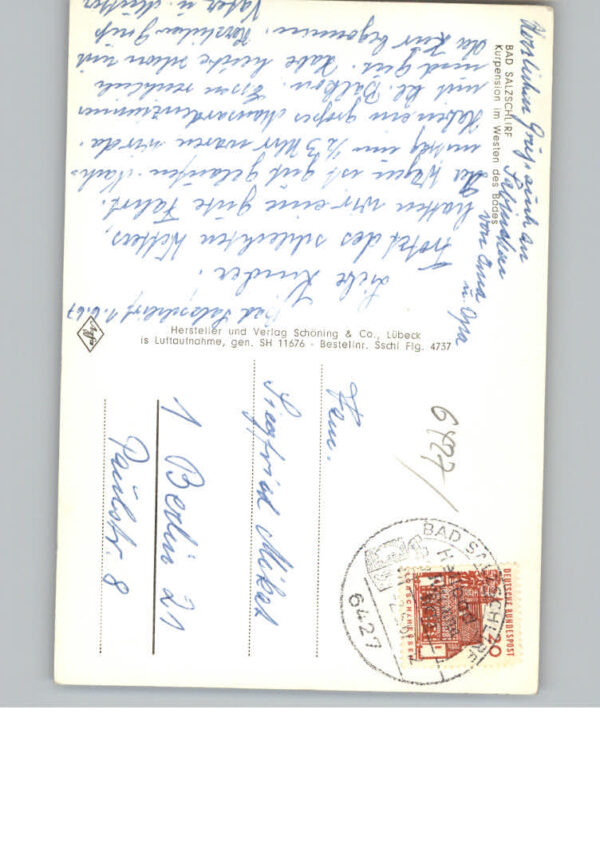 BAD SALZSCHLIRF
Kurpension im Westen des Bades
Bad Salzschlirf, 1.6.67
Liebe Kinder.
Trotz des schlechten Wetters,
hatten wir eine gute Fahrt.
Der Wagen ist gut gelaufen. Nach-
mittag um 1/2 3 Uhr waren wir da.
Haben ein großes Mansardenzimmer
mit kl. Balkon. Essen reichlich
und gut. Habe heute schon mit
der Kur begonnen. Herzlichen Gruß
Vater u. Mutter
Herzlichen Gruß auch an
von Oma
u. Opa
Agfa
Hersteller und Verlag Schöning & Co., Lübeck
is Luftaufnahme, gen. SH 11676 - Bestellnr. Sschl Flg. 4737
Fam.
Siegfried Mikat
1 Berlin 21
Paulstr. 8
6427
BAD SALZSCHLIRF
6427
DEUTSCHE BUNDESPOST
20
LORSCH/HESSEN